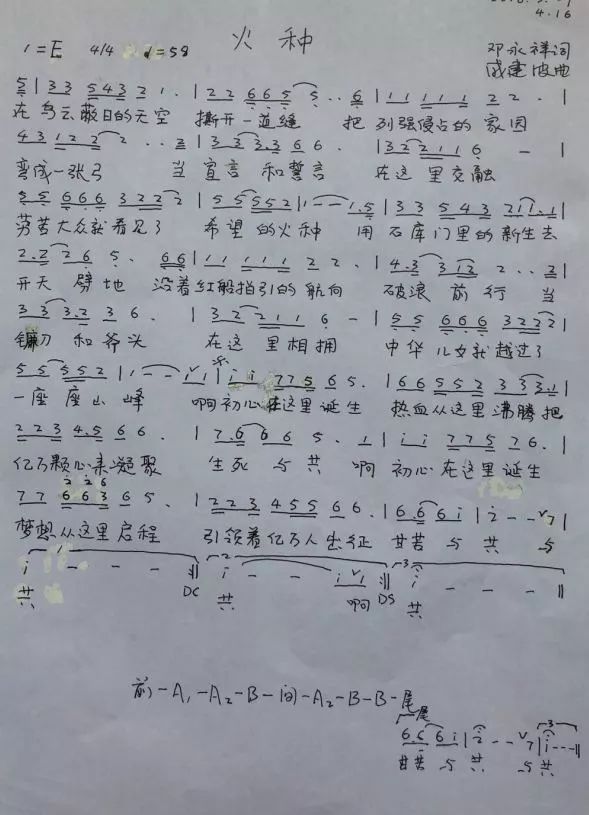 4.16
火种
1=E 4/4 ♩=58
邓永祥词
成建波曲
5 | 3 3 5 4 3 2 1 . | 2 2 6 6 5 5 . . 6 | 1 1 1 1 1 2 2 . |
在乌云蔽日的天空 撕开一道缝 把列强侵占的家园
4 3 1 2 2 2 . . 3 | 3 3 3.3 6 6 . | 3 2 2 1 1 6 - |
弯成一张弓 当宣言和誓言 在这里交融
5 5 6 6 6 3 2 2 2 | 5 5 5 5 2 | 1 - - 1.5 | 3 3 5 4 3 2 1 1.1 |
劳苦大众就看见了 希望的火种 用石库门里的新生去
2.2 2 6 5 . 6 6 | 1 1 1 1 1 2 2 . | 4.3 3 1 2 2 . . 3 |
开天劈地 沿着红船指引的航向 破浪前行 当
3 3 3.2 3 6 . | 3 2 2 1 1 6 - | 5 5 6 6 6 3 2 2 2 |
镰刀和斧头 在这里相拥 中华儿女就越过了
5 5 5 5 2 | 1 - - 1 1 | i i 7 7 5 6 5 . | 6 6 5 5 2 3 3 3.1 |
一座座山峰 啊初心在这里诞生 热血从这里沸腾把
2 2 3 4.5 6 6 . | 7.6 6 6 5 . 1 | i i 7 7 5 7 6 . |
亿万颗心来凝聚 生死与共 啊初心在这里诞生
7 7 6 6 3 6 5 . | 2 2 3 4 5 5 6 6 . | 6 6 6 i | 2 - - 7 |
梦想从这里启程 引领着亿万人出征 甘苦与共 与
1 i - - - DC 2 i - - i 1 DS 3 i - - -
共 共 啊 共
前-A₁-A₂-B-间-A₂-B-B-尾
尾
6 6 6 i | 2 - - 7 | 3 i - - -
甘苦与共 与共